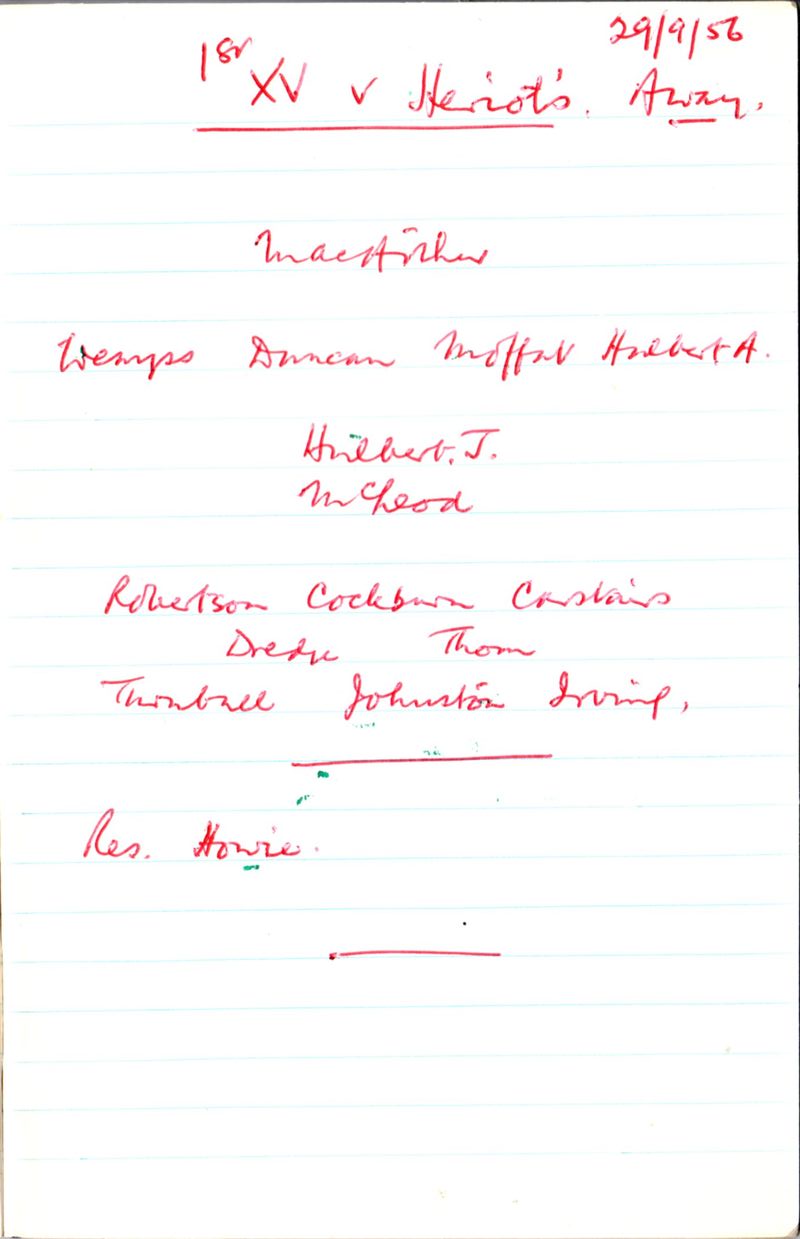 29/9/56
1st XV v Heriot's. Away.
MacArthur
Wemyss Duncan Moffat Hulbert A.
Hulbert. J.
McLeod
Robertson Cockburn Carstairs
Dredge Thom
Turnbull Johnston Irving,
Res. Howie.